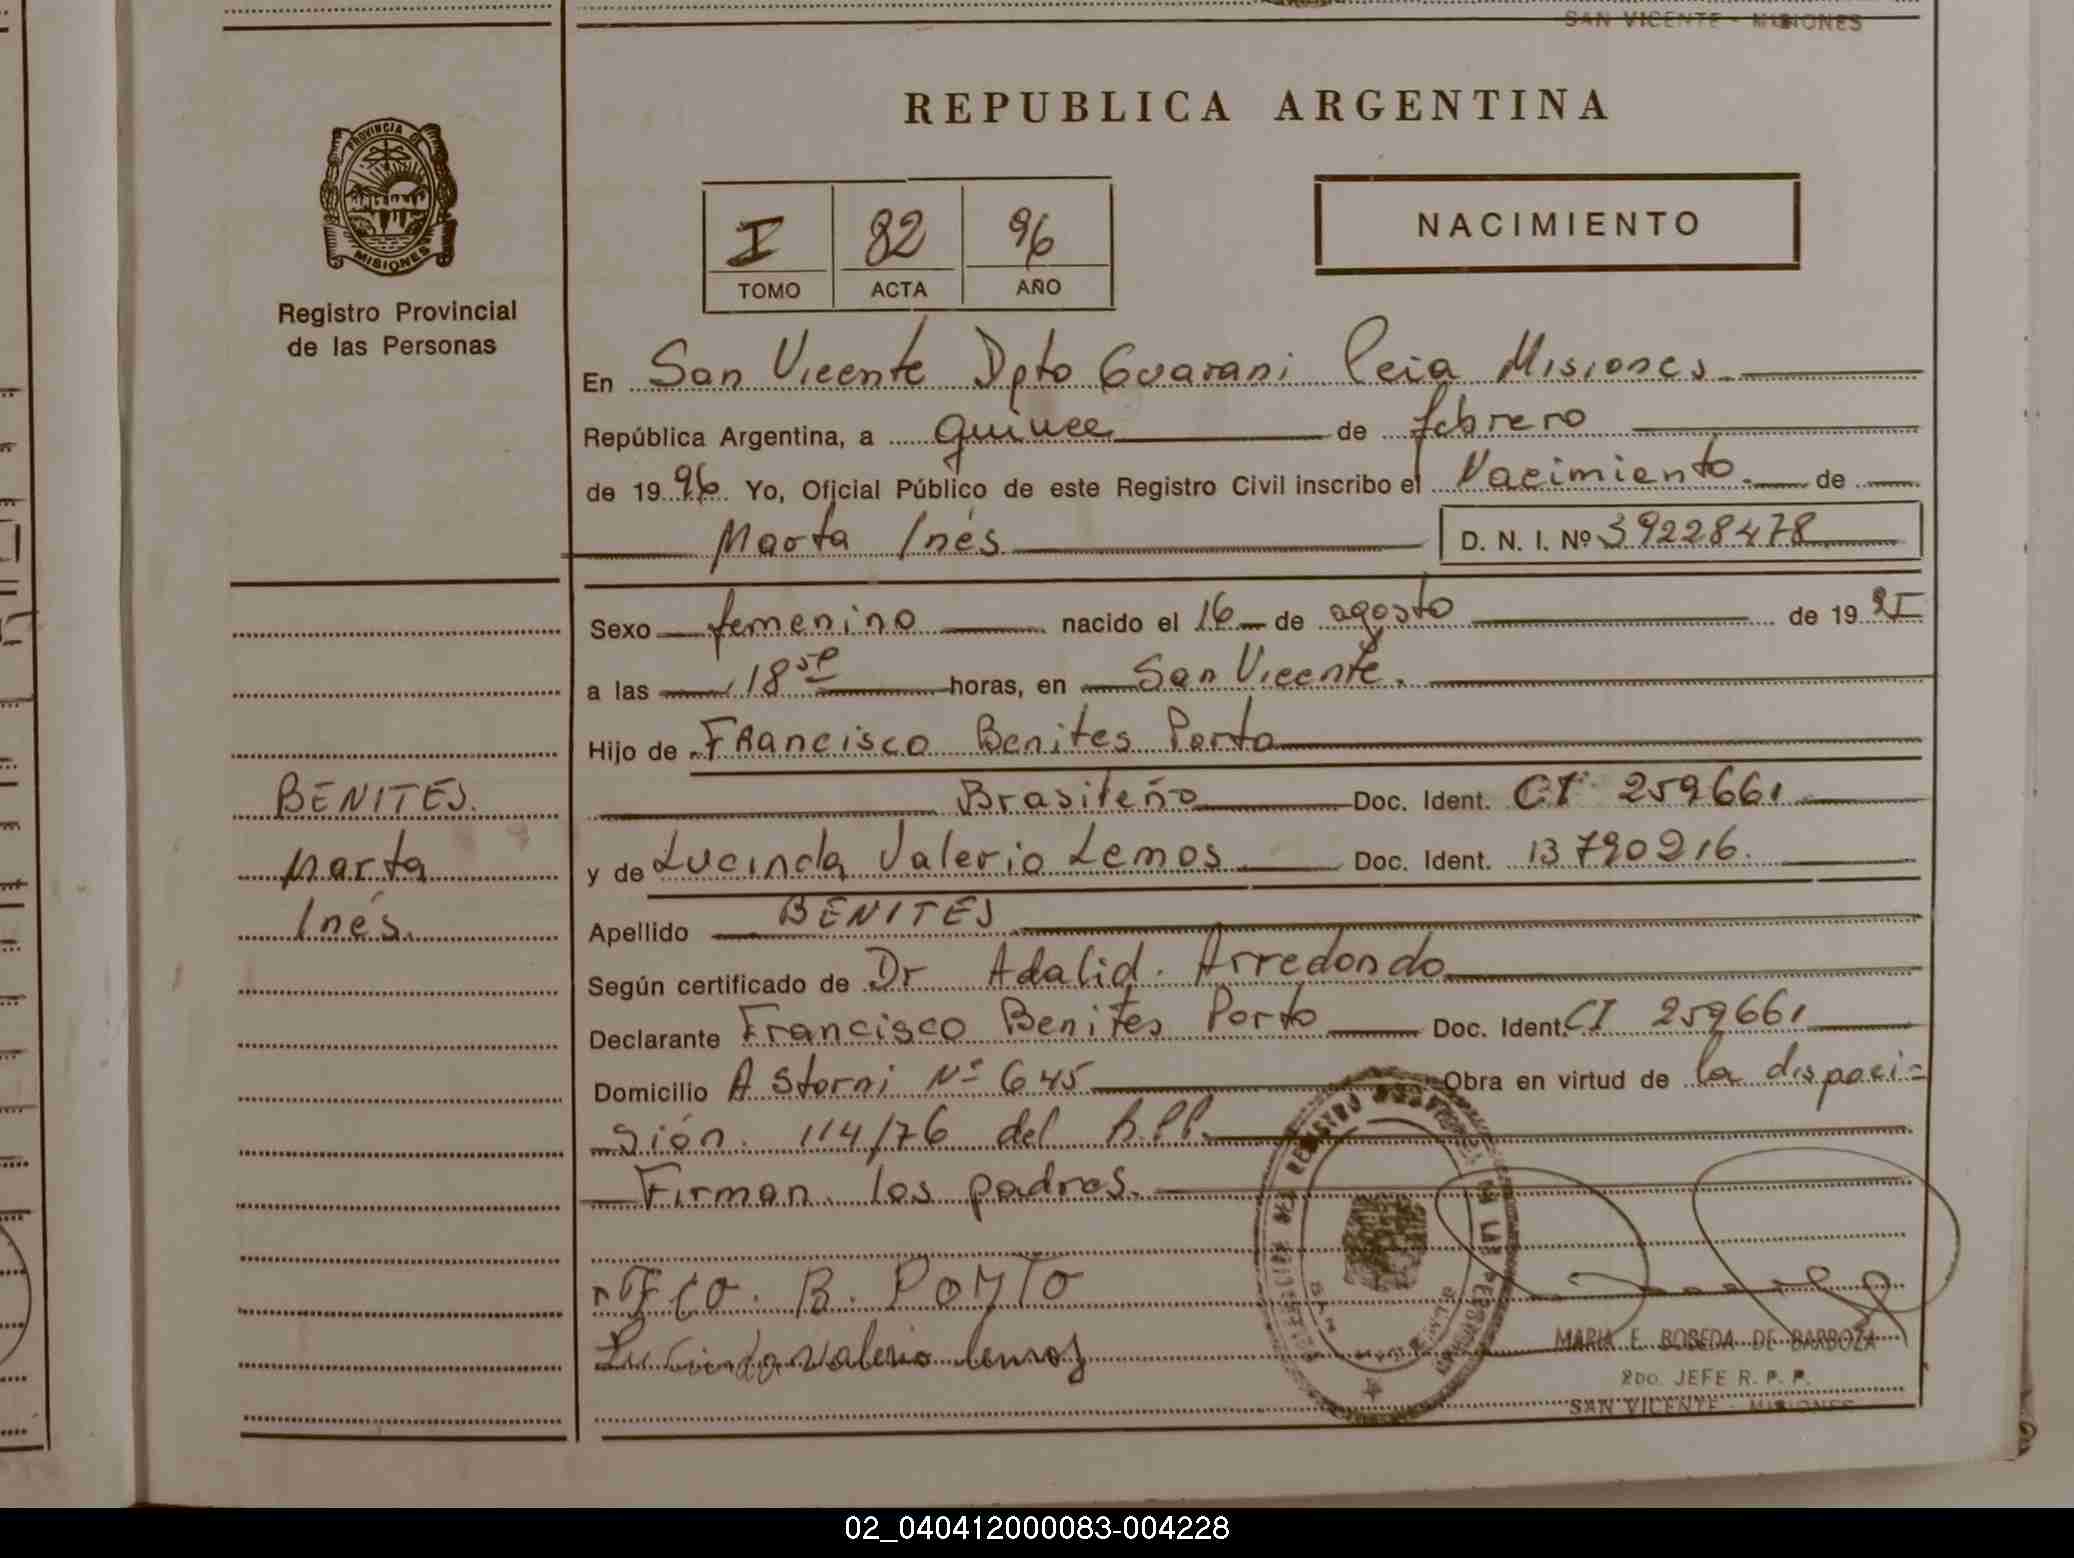 SAN VICENTE - MISIONES
REPUBLICA ARGENTINA
PROVINCIA DE
MISIONES
Registro Provincial
de las Personas
I 82 96
TOMO ACTA AÑO
NACIMIENTO
En San Vicente Dpto Guarani Pcia Misiones
República Argentina, a quince de febrero
de 1996 Yo, Oficial Público de este Registro Civil inscribo el Nacimiento de
Marta Inés D. N. I. Nº 39228478
Sexo femenino nacido el 16 de agosto de 19
a las 18 horas, en San Vicente.
Hijo de Francisco Benites Porto
Brasileño Doc. Ident. CI 259661
y de Lucinda Valerio Lemos Doc. Ident. 13790216.
Apellido BENITES
Según certificado de Dr Adalid. Arredondo
Declarante Francisco Benites Porto Doc. Ident. CI 259661
Domicilio A Storni Nº 645 Obra en virtud de la disposi=
sión. 114/76 del R.P.P.
Firman los padres.
Fco. B. PORTO
Lucinda Valerio lemos
BENITES.
Marta
Inés.
MARIA E. BOBEDA DE BARBOZA
2DO. JEFE R. P. P.
SAN VICENTE - MISIONES
02_040412000083-004228